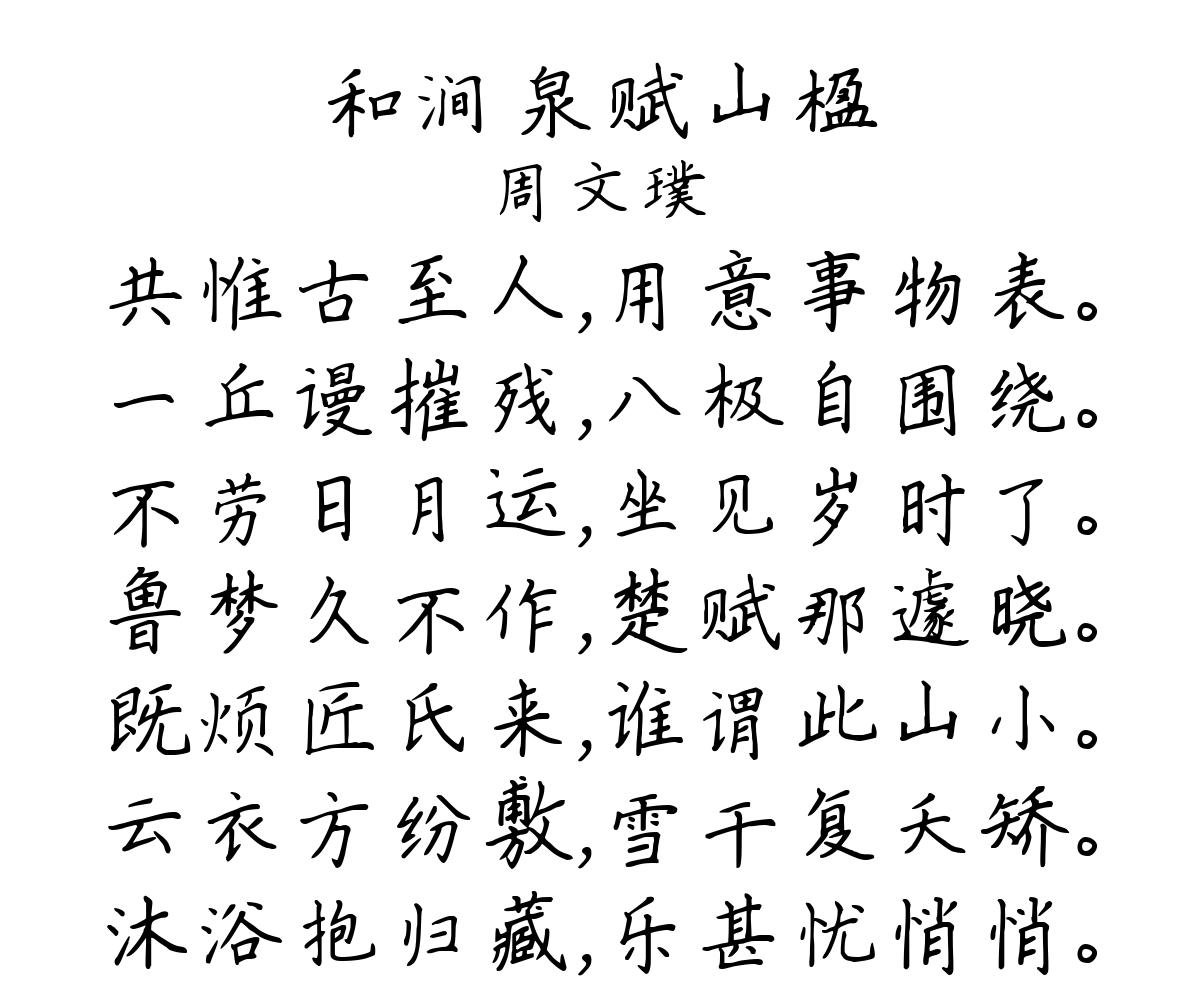 和涧泉赋山楹
周文璞
共惟古至人,用意事物表。
一丘谩摧残,八极自围绕。
不劳日月运,坐见岁时了。
鲁梦久不作,楚赋那遽晓。
既烦匠氏来,谁谓此山小。
云衣方纷敷,雪干复夭矫。
沐浴抱归藏,乐甚忧悄悄。